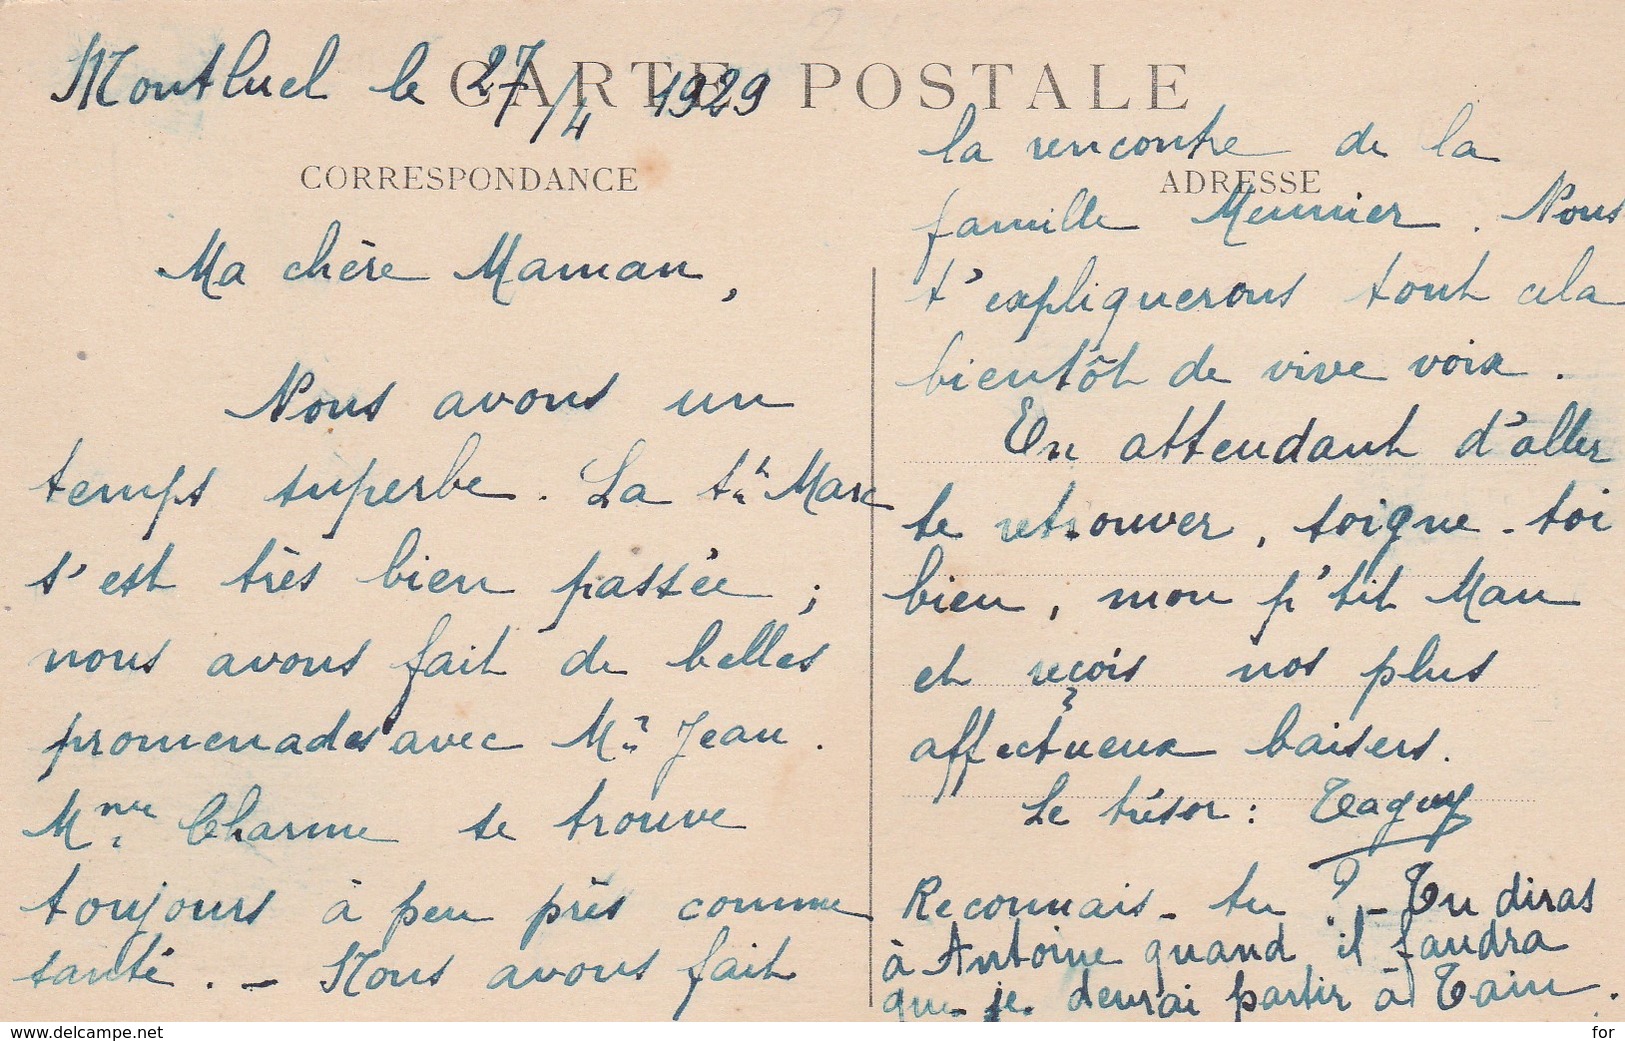 Montluel le 27/4 1929
CARTE POSTALE
CORRESPONDANCE
Ma chère Maman,
Nous avons un
temps superbe. La St Marc
s'est très bien passée ;
nous avons fait de belles
promenades avec Mr Jean.
Mme Charme se trouve
toujours à peu près comme
santé. - Nous avons fait
ADRESSE
la rencontre de la
famille Meunier. Nous
t'expliquerons tout cela
bientôt de vive voix.
En attendant d'aller
te retrouver, soigne-toi
bien, mon p'tit Man
et reçois nos plus
affectueux baisers.
Le trésor : Taguy
Reconnais-tu ? - Tu diras
à Antoine quand il faudra
que je devrai partir à Tain.
www.delcampe.net
for